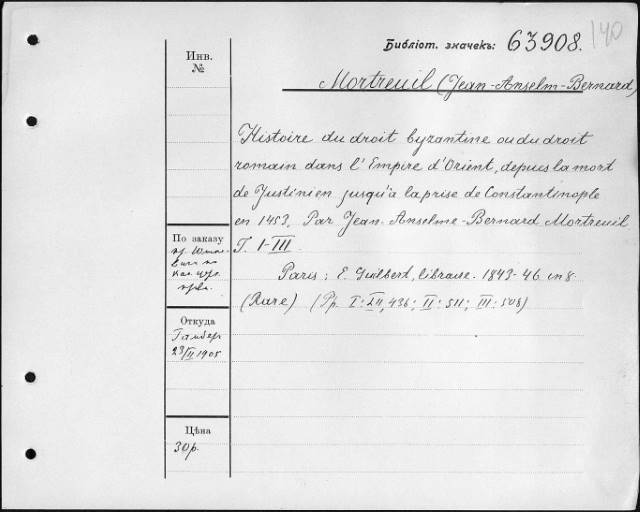 Библіот. значекъ: 63908.
140
Инв.
№
Mortreuil (Jean-Anselm-Bernard)
Histoire du droit byzantine ou du droit
romain dans l'Empire d'Orient, depuis la mort
de Justinien jusqu'à la prise de Constantinople
en 1453. Par Jean-Anselme-Bernard Mortreuil
T. I-III.
Paris; E. Guilbert, libraire. 1843-46. in 8.
(Rare) (Pp. I: LII, 436; II: 511; III: 508)
По заказу
пр.
Откуда
23/II 1905
Цѣна
30 р.